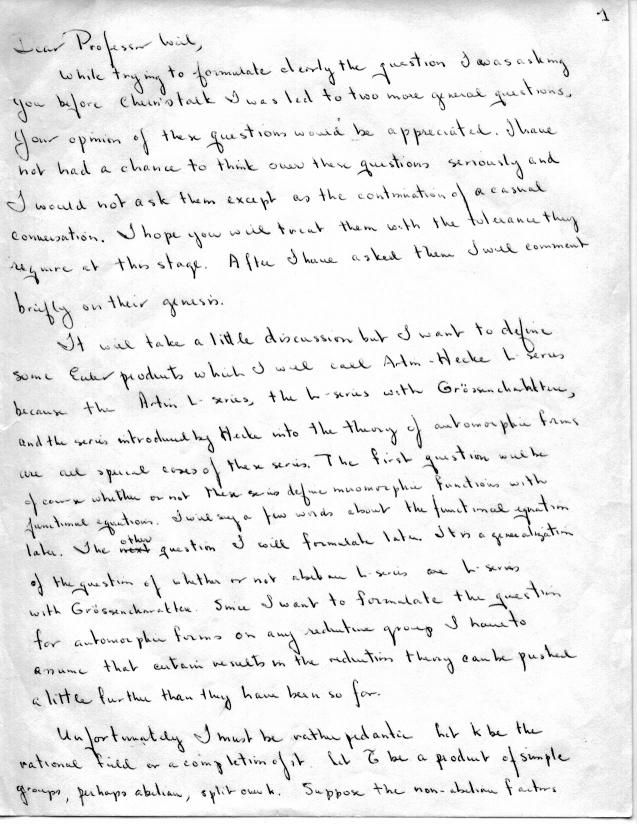 1
Dear Professor Weil,
While trying to formulate clearly the question I was asking
you before Chern's talk I was led to two more general questions.
Your opinion of these questions would be appreciated. I have
not had a chance to think over these questions seriously and
I would not ask them except as the continuation of a casual
conversation. I hope you will treat them with the tolerance they
require at this stage. After I have asked them I will comment
briefly on their genesis.
It will take a little discussion but I want to define
some Euler products which I will call Artin-Hecke L-series
because the Artin L-series, the L-series with Grössencharakteren,
and the series introduced by Hecke into the theory of automorphic forms
are all special cases of these series. The first question will be
of course whether or not these series define meromorphic functions with
functional equations. I will say a few words about the functional equation
later. The other question I will formulate later. It is a generalization
of the question of whether or not abelian L-series are L-series
with Grössencharakteren. Since I want to formulate the question
for automorphic forms on any reductive group I have to
assume that certain results in the reduction theory can be pushed
a little further than they have been so far.
Unfortunately I must be rather pedantic. Let k be the
rational field or a completion of it. Let G̃ be a product of simple
groups, perhaps abelian, split over k. Suppose the non-abelian factors